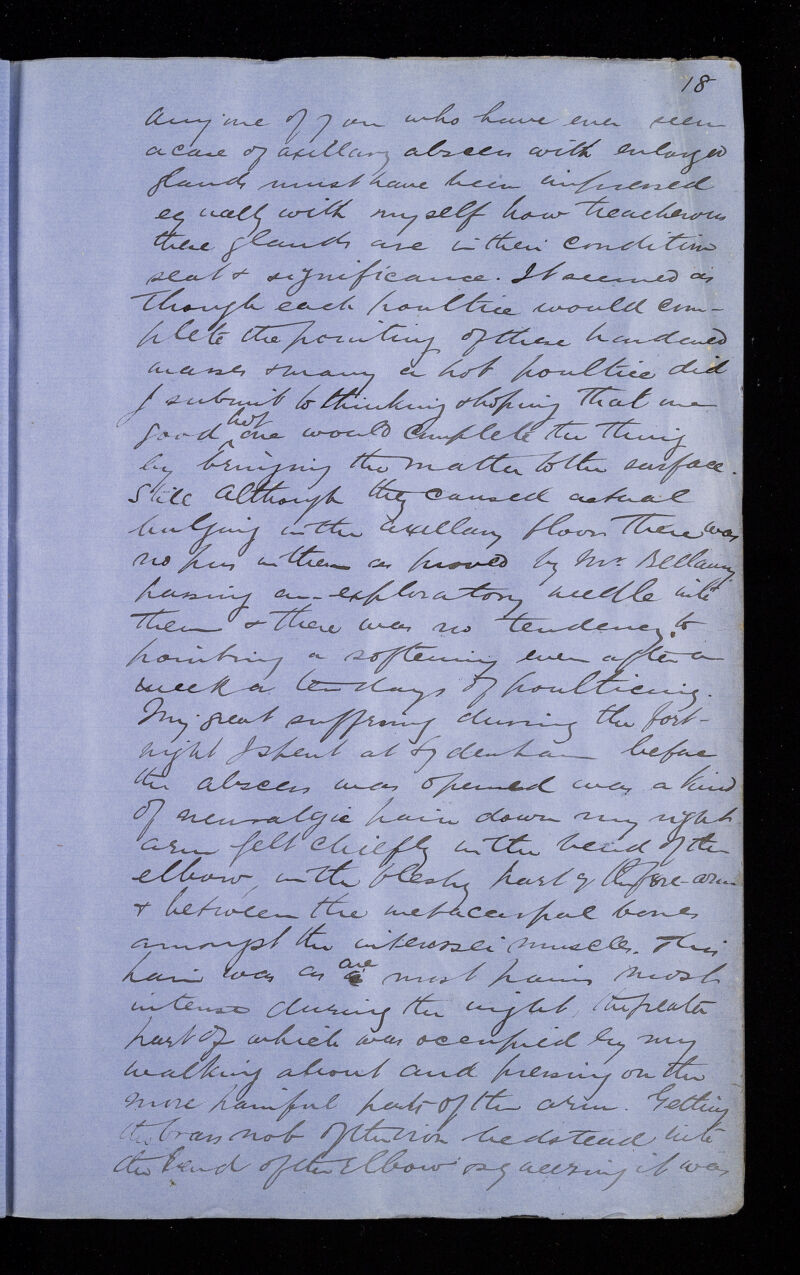 18
Any one of you who have ever seen
a case of axillary abscess with enlarged
glands must have been impressed
equally with myself how treacherous
these glands are in their condition
seat & significance. It seemed as
though each poultice would com-
plete the pointing of these hardened
masses & many a hot poultice did
I submit to thinking & hoping that one
good hot one would complete the thing
by bringing the matter to the surface.
Still although they caused actual
bulging in the axillary floor there was
no pus in them as proved by Mr. Bellamy
passing an exploratory needle into
them & there was no tendency to
pointing or softening even after a
week or ten days of poulticing.
My great suffering during the fort-
night I spent at Sydenham before
the abscess was opened was a kind
of neuralgic pain down my right
arm felt chiefly in the bend of the
elbow, in the fleshy part of the fore-arm
& between the metacarpal bones
amongst the interossei muscles. This
pain was as are most pains most
intense during the night, the greater
part of which was occupied by my
walking about and pressing on the
more painful parts of the arm. Getting
the brass nob of the iron bedstead into
the bend of the elbow & squeezing it was